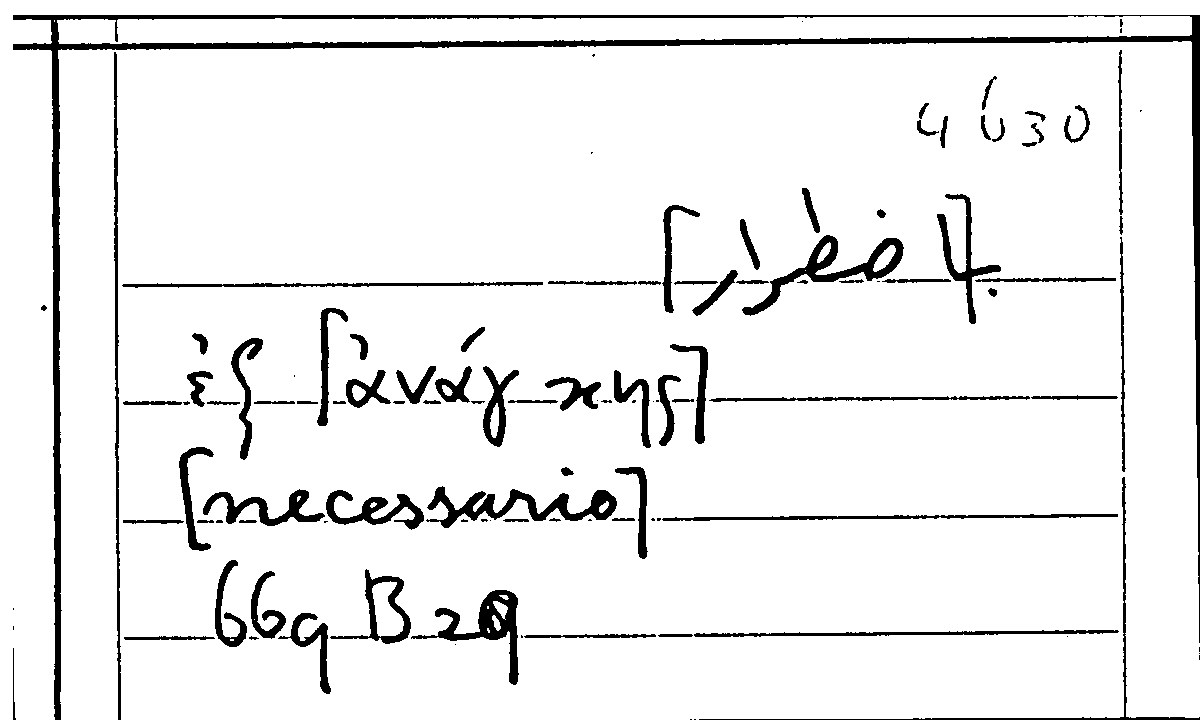 4630
[باضطرار]
ἐξ [ἀνάγκης]
[necessario]
669 B 29